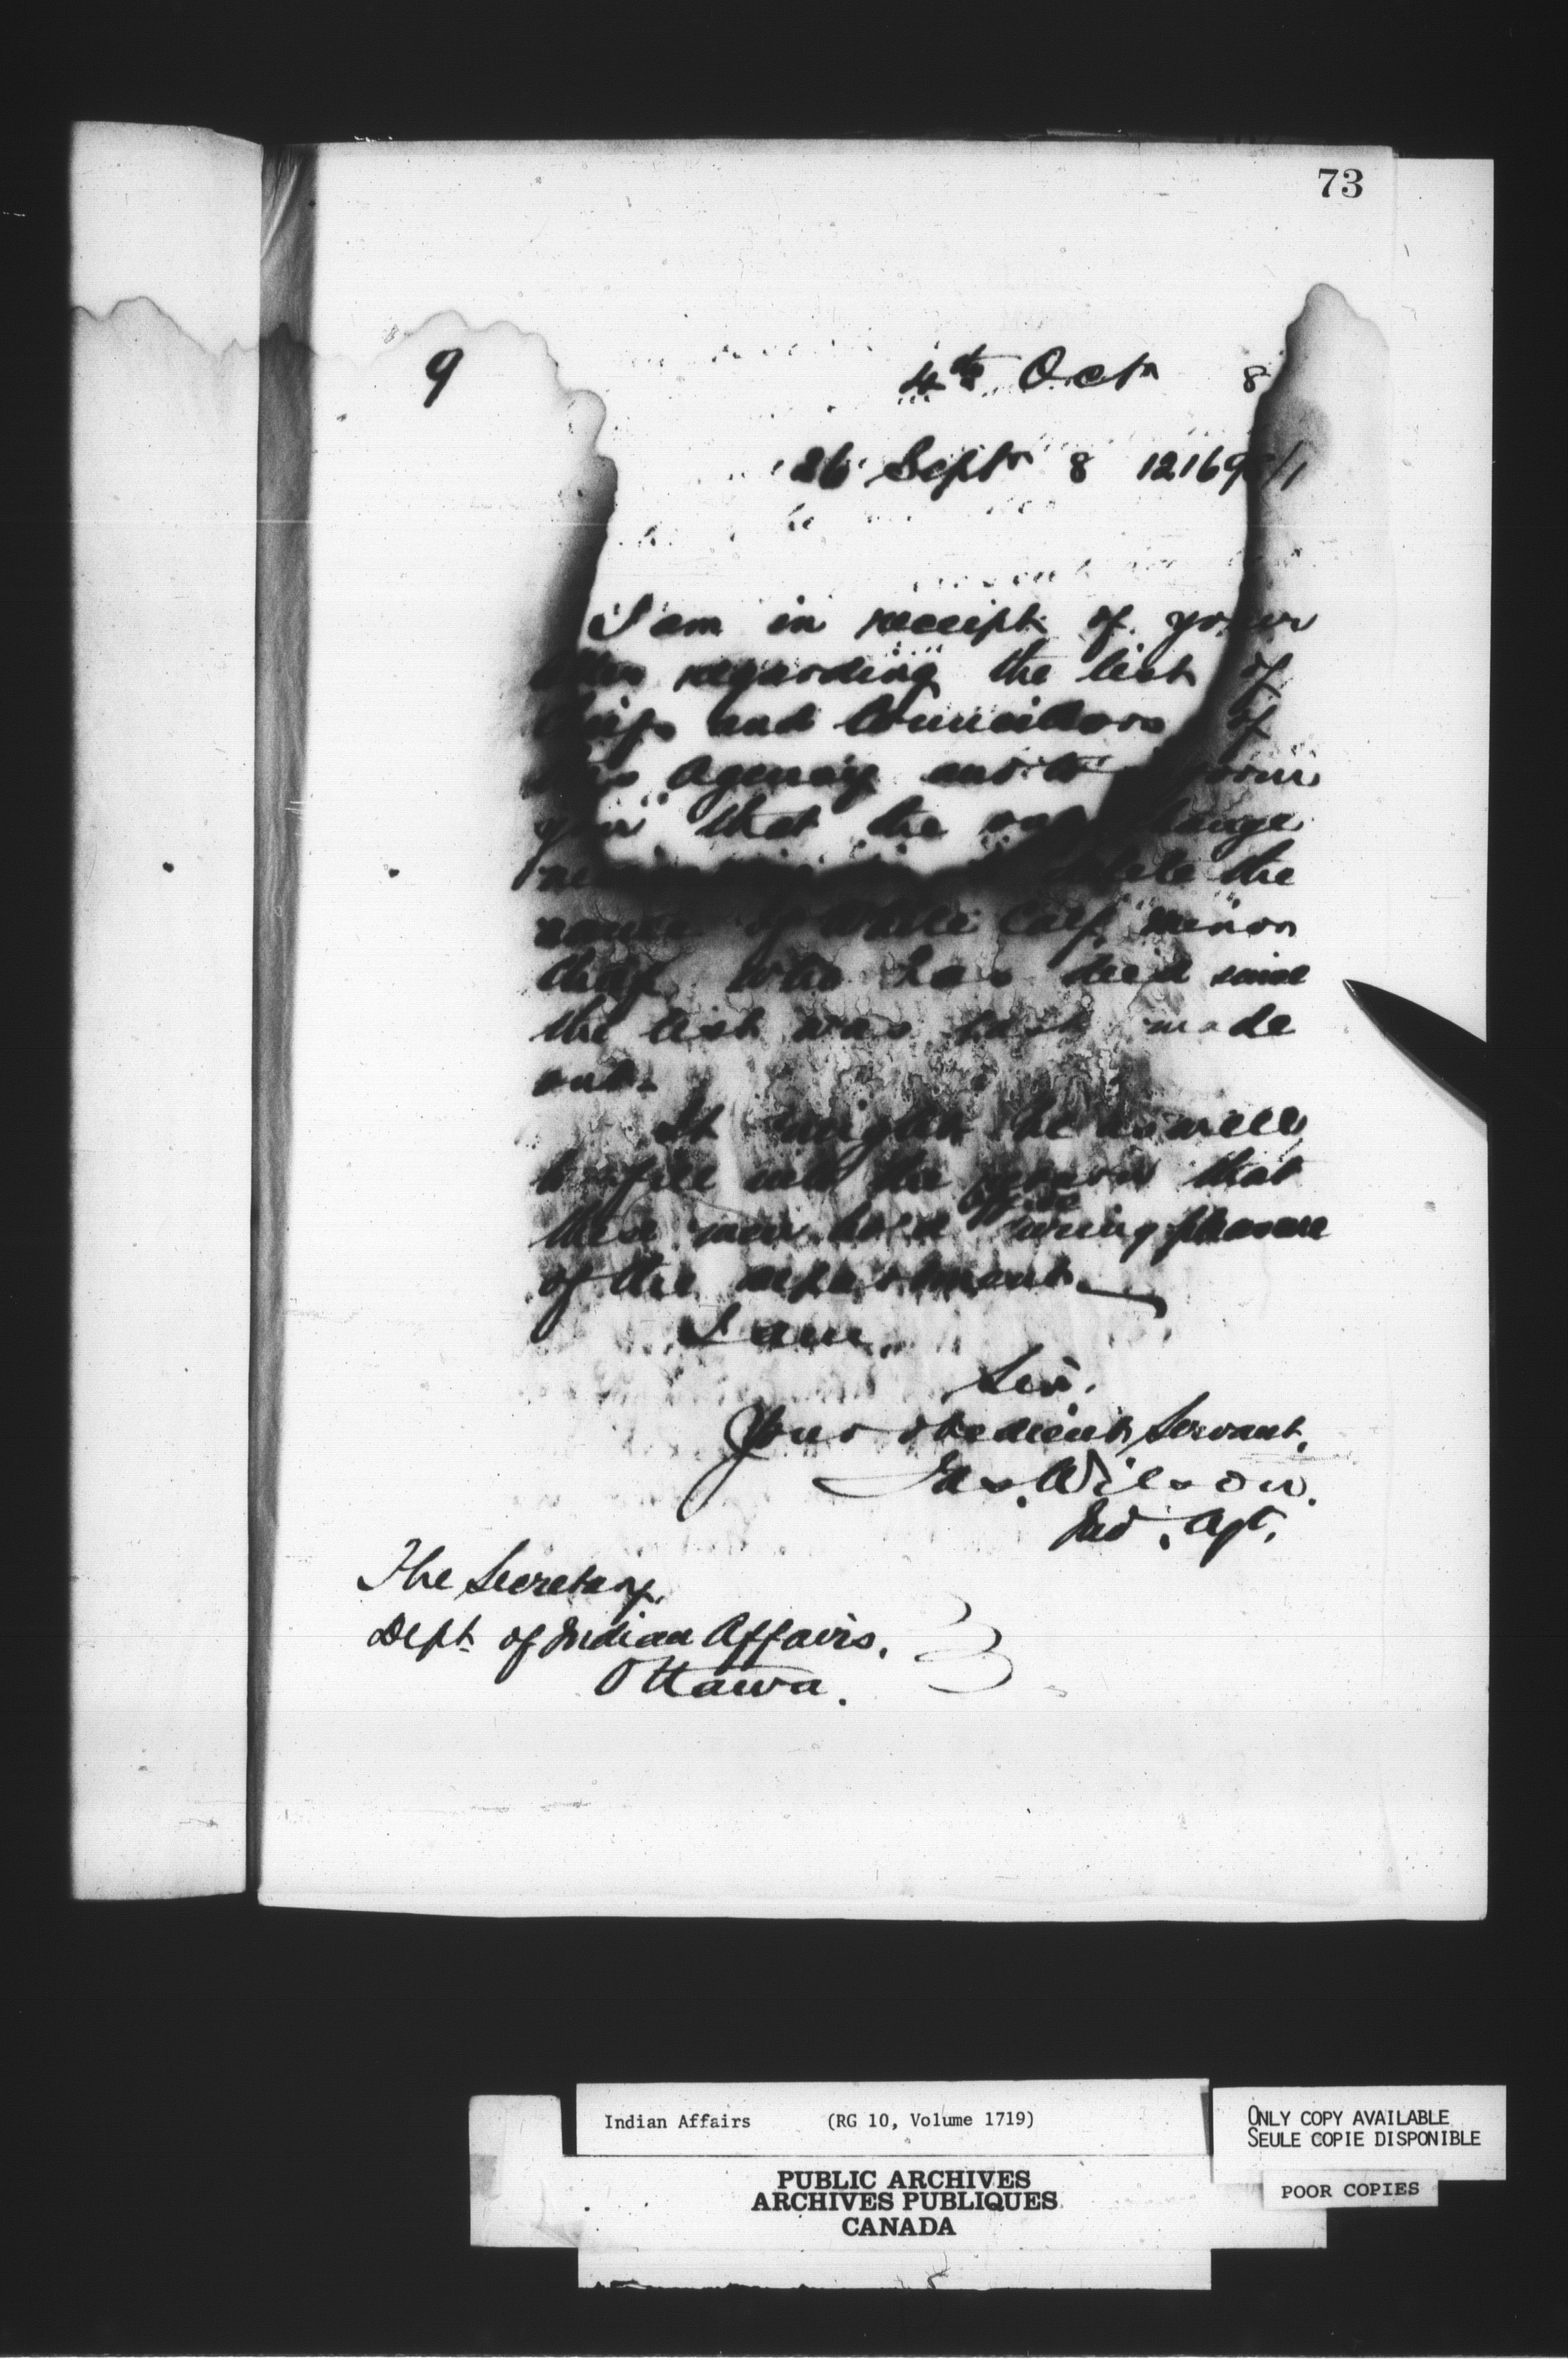 73
9 4th Octr 8
26 Septr 8 121698/1
I am in receipt of your
regarding the list of
Chiefs and Councillors of
this Agency and to inform
you that the only change
delete the
name of White Calf, minor
Chief who has died since
the list was last made
out.
It might be as well
to fill in the that
these men hold office during pleasure
of the department.
I am,
Sir,
Your obedient Servant,
Jas. Wilson.
Ind. Agt.
The Secretary,
Dept. of Indian Affairs.
Ottawa.
Indian Affairs (RG 10, Volume 1719)
PUBLIC ARCHIVES
ARCHIVES PUBLIQUES
CANADA
ONLY COPY AVAILABLE
SEULE COPIE DISPONIBLE
POOR COPIES